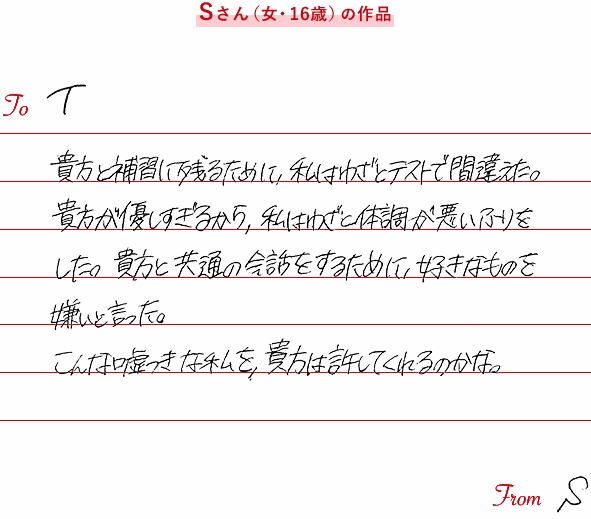 Sさん（女・16歳）の作品
To T
貴方と補習に残るために，私はわざとテストで間違えた。
貴方が優しすぎるから，私はわざと体調が悪いふりを
した。貴方と共通の会話をするために，好きなものを
嫌いと言った。
こんな嘘つきな私を，貴方は許してくれるのかな。
From S